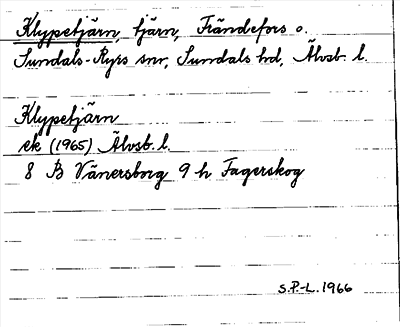 Klypetjärn, tjärn, Frändefors o.
Sundals-Ryrs snr, Sundals hd, Älvsb. l.
Klypetjärn
ek (1965) Älvsb. l.
8 B Vänersborg 9 h Fagerskog
S.P.-L. 1966